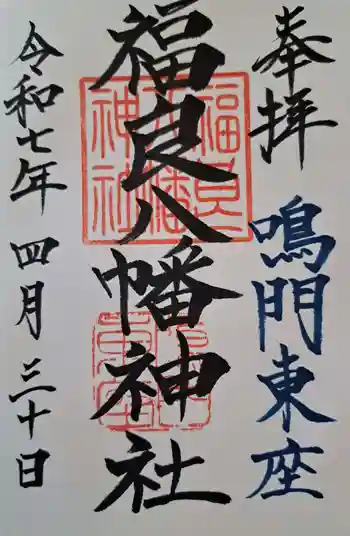 奉拝
鳴門東座
福良八幡神社
令和七年 四月 三十日
福良八幡神社